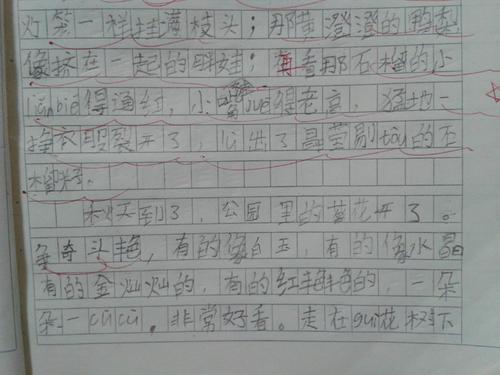 灯笼一样挂满枝头；那黄澄澄的鸭梨
像挤在一起的胖娃；再看那石榴的小
得通红，小嘴jue得老高，猛地一
挣衣服裂开了，公出了晶莹剔tòu的石
榴籽。
秋天到了，公园里的菊花开了。
争奇斗艳，有的像白玉，有的像水晶
有的金灿灿的，有的红艳艳的，一朵
朵一cùcù，非常好看。走在guì花树下